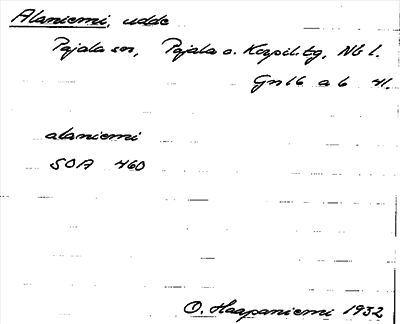 Alaniemi, udde
Pajala sn, Pajala o. Korpil. tg, Nb l.
Gn 16 a b 41.
alaniemi
SOA 460
O. Haapaniemi 1932